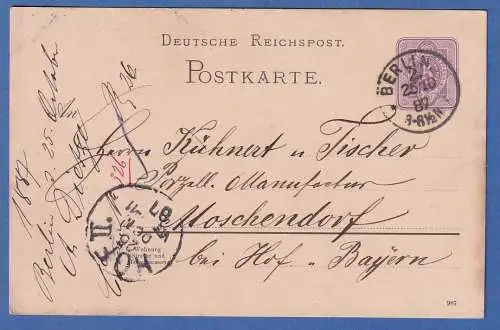 DEUTSCHE REICHSPOST.
POSTKARTE.
BERLIN
25 10
87
8-8½N
An
Herrn Kühnert u. Tischer
Porzell. Manufactur
Moschendorf
bei Hof. Bayern
HOF II.
87
Wohnung
326
1887
Berlin d. 25. October
987